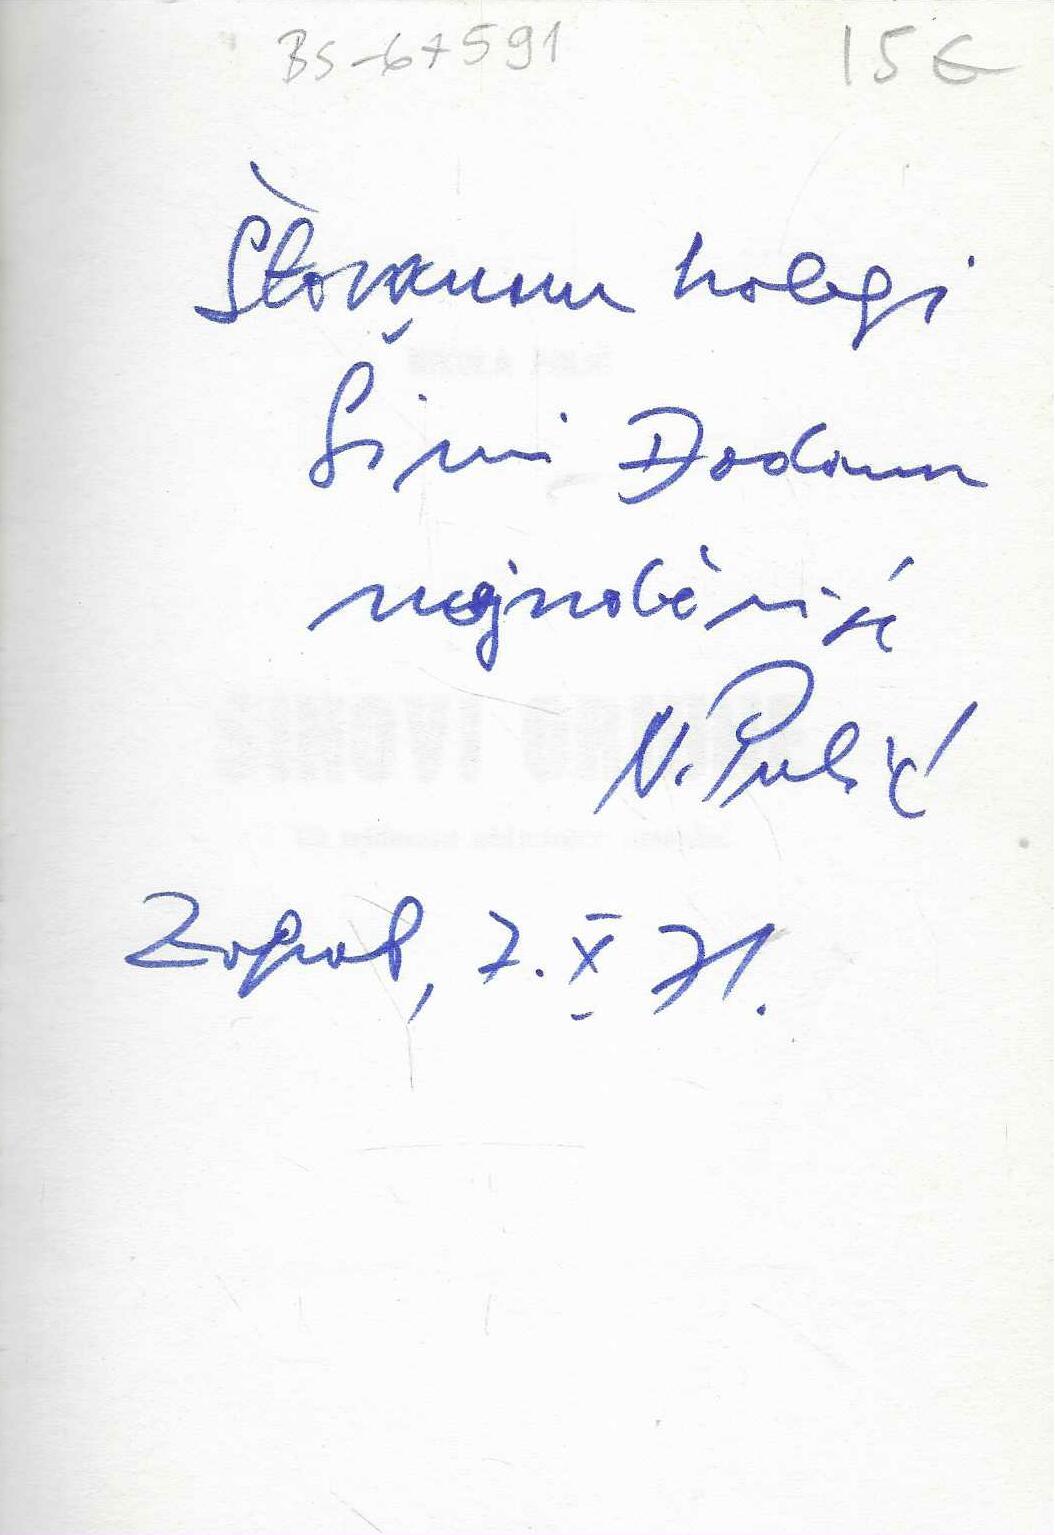 BS-67591
15€
Štovanom kolegi
Šimi Đodanu
najsrdačnije
N. Pulić
Zagreb, 7. X 71.